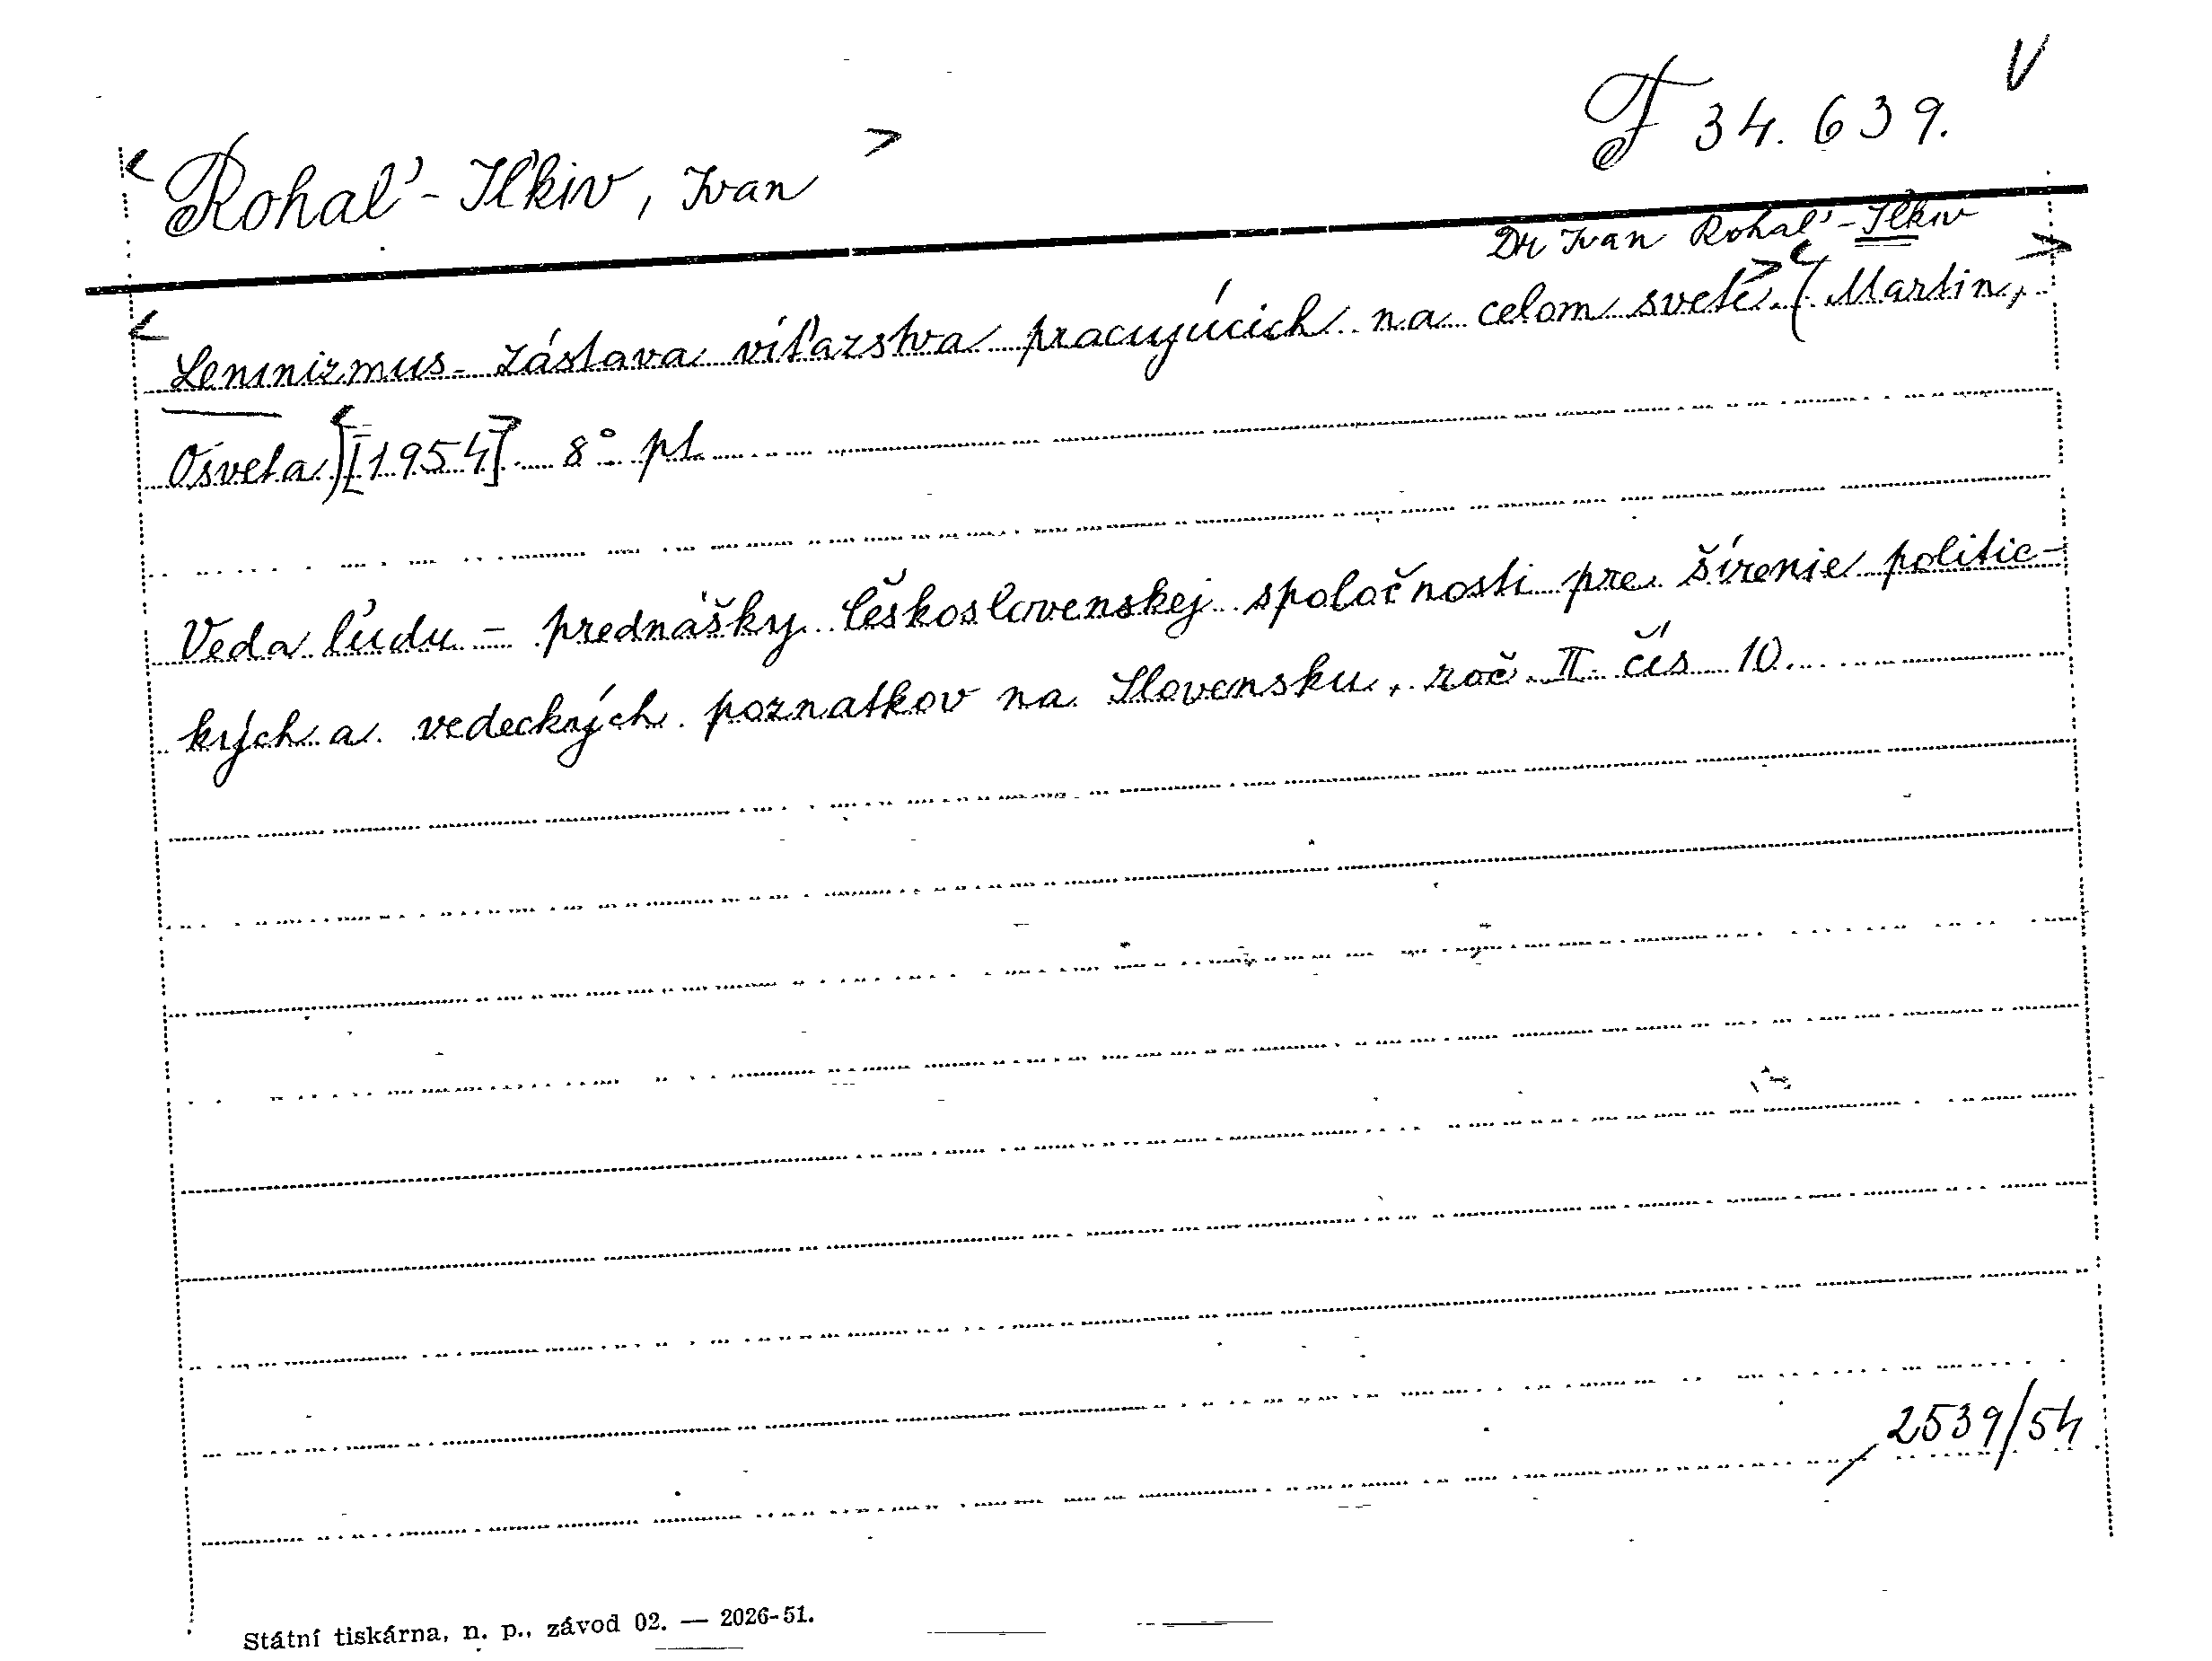 F 34.639. V
< Rohaľ-Iľkiv, Ivan >
Dr Ivan Rohaľ-Iľkiv
< Leninizmus - zástava víťazstva pracujúcich na celom svete. > < (Martin, >
Osveta) < [1954] > 8° pl.
Veda ľudu - prednášky Československej spoločnosti pre šírenie politic-
kých a vedeckých poznatkov na Slovensku, roč. II. čís 10.
2539/54
Státní tiskárna, n. p., závod 02. — 2026-51.